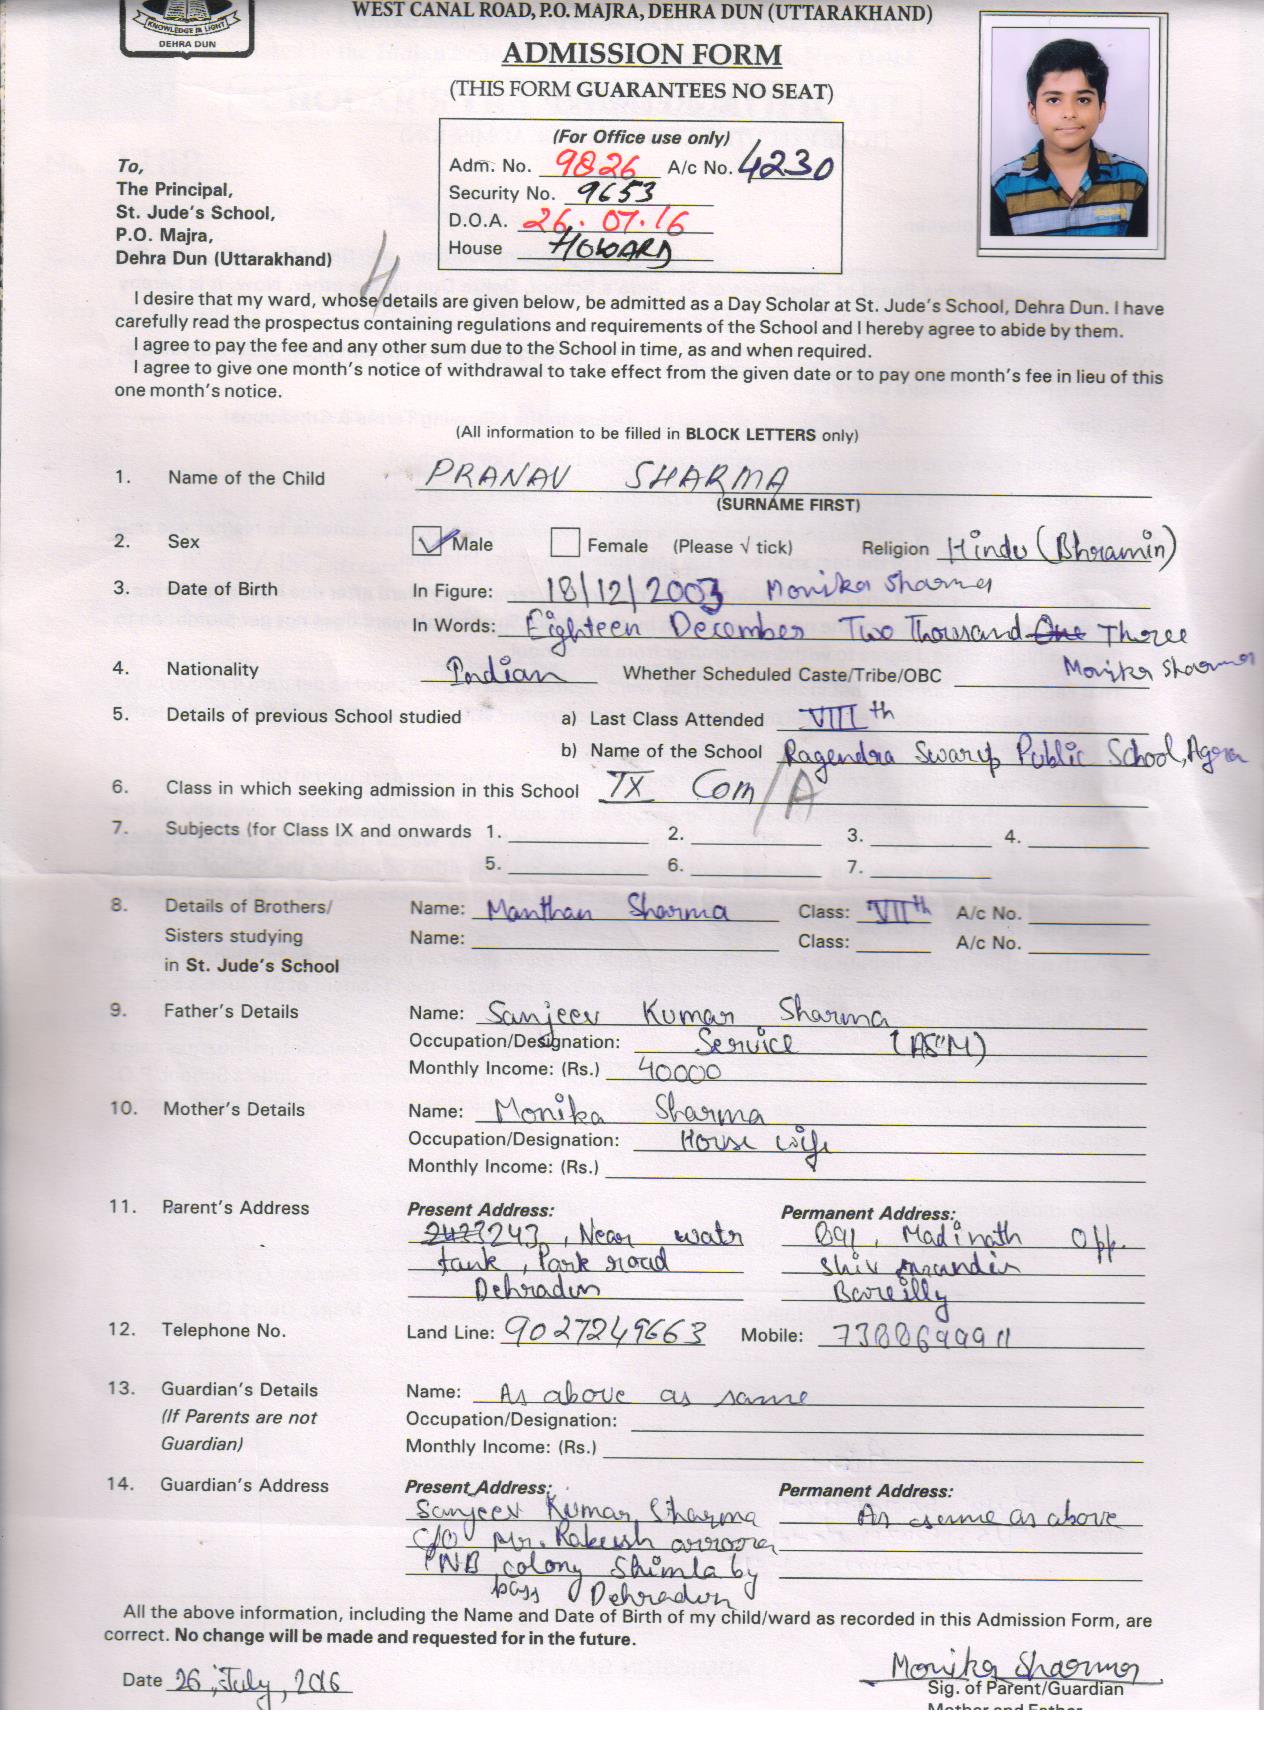 KNOWLEDGE IS LIGHT
DEHRA DUN
WEST CANAL ROAD, P.O. MAJRA, DEHRA DUN (UTTARAKHAND)
ADMISSION FORM
(THIS FORM GUARANTEES NO SEAT)
(For Office use only)
Adm. No. 9826 A/c No. 4230
Security No. 9653
D.O.A. 26.07.16
House HOWARD
To,
The Principal,
St. Jude's School,
P.O. Majra,
Dehra Dun (Uttarakhand)
I desire that my ward, whose details are given below, be admitted as a Day Scholar at St. Jude's School, Dehra Dun. I have
carefully read the prospectus containing regulations and requirements of the School and I hereby agree to abide by them.
I agree to pay the fee and any other sum due to the School in time, as and when required.
I agree to give one month's notice of withdrawal to take effect from the given date or to pay one month's fee in lieu of this
one month's notice.
(All information to be filled in BLOCK LETTERS only)
1. Name of the Child PRANAV SHARMA
(SURNAME FIRST)
2. Sex Male Female (Please √ tick) Religion Hindu (Bhramin)
3. Date of Birth In Figure: 18/12/2003 Monika Sharma
In Words: Eighteen December Two Thousand One Three
4. Nationality Indian Whether Scheduled Caste/Tribe/OBC Monika Sharma
5. Details of previous School studied a) Last Class Attended VIII th
b) Name of the School Ragendra Swarup Public School, Agra
6. Class in which seeking admission in this School IX Com/A
7. Subjects (for Class IX and onwards 1. 2. 3. 4.
5. 6. 7.
8. Details of Brothers/ Name: Manthan Sharma Class: VII th A/c No.
Sisters studying Name: Class: A/c No.
in St. Jude's School
9. Father's Details Name: Sanjeev Kumar Sharma
Occupation/Designation: Service (ASM)
Monthly Income: (Rs.) 40000
10. Mother's Details Name: Monika Sharma
Occupation/Designation: House wife
Monthly Income: (Rs.)
11. Parent's Address Present Address: Permanent Address:
243, Near watr 891, Madinath Opp.
tank, Park road Shiv mandir
Dehradun Bareilly
12. Telephone No. Land Line: 9027249663 Mobile: 7388699911
13. Guardian's Details Name: As above as same
(If Parents are not Occupation/Designation:
Guardian) Monthly Income: (Rs.)
14. Guardian's Address Present Address: Permanent Address:
Sanjeev Kumar Sharma As same as above
C/O Mr. Rakesh arroora
PNB colony Shimla by
pass Dehradun
All the above information, including the Name and Date of Birth of my child/ward as recorded in this Admission Form, are
correct. No change will be made and requested for in the future.
Date 26, July, 2016 Monika Sharma
Sig. of Parent/Guardian
Mother and Father